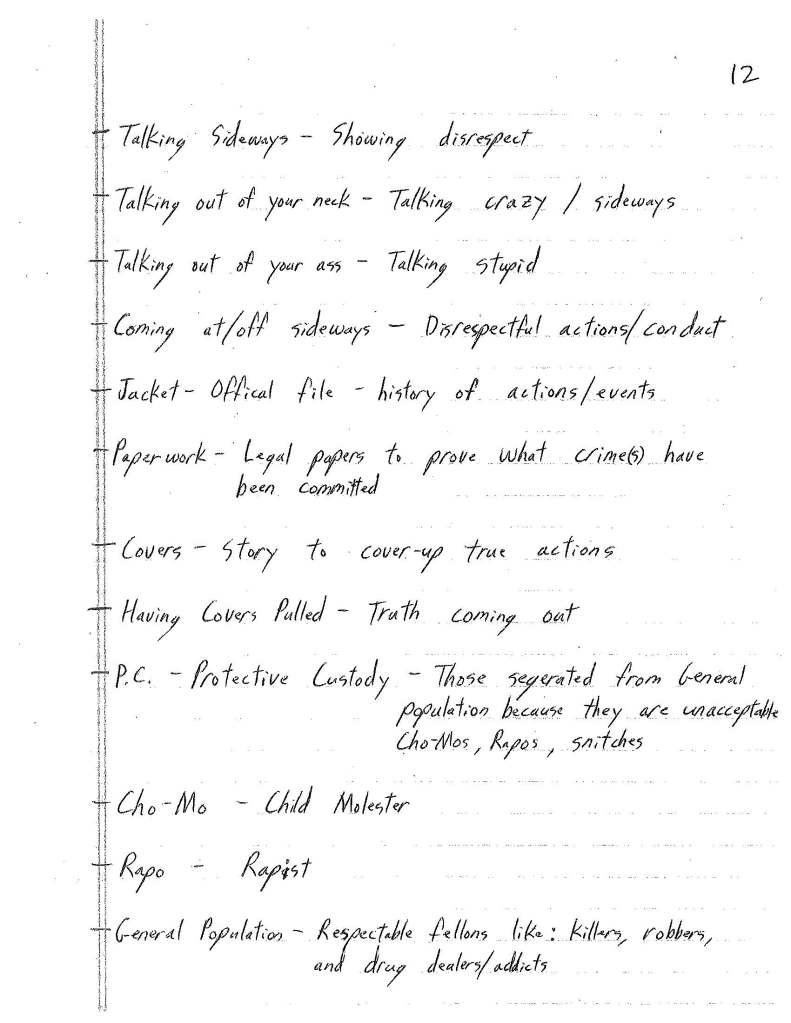 12
Talking Sideways - Showing disrespect
Talking out of your neck - Talking crazy / sideways
Talking out of your ass - Talking stupid
Coming at/off sideways - Disrespectful actions/conduct
Jacket - Offical file - history of actions/events
Paperwork - Legal papers to prove what crime(s) have
been committed
Covers - Story to cover-up true actions
Having Covers Pulled - Truth coming out
P.C. - Protective Custody - Those segerated from General
population because they are unacceptable
Cho-Mos, Rapos, snitches
Cho-Mo - Child Molester
Rapo - Rapist
General Population - Respectable fellons like: killers, robbers,
and drug dealers/addicts